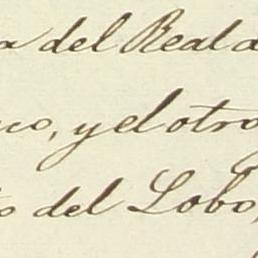 a del Real a
co, y el otro
o del Lobo,